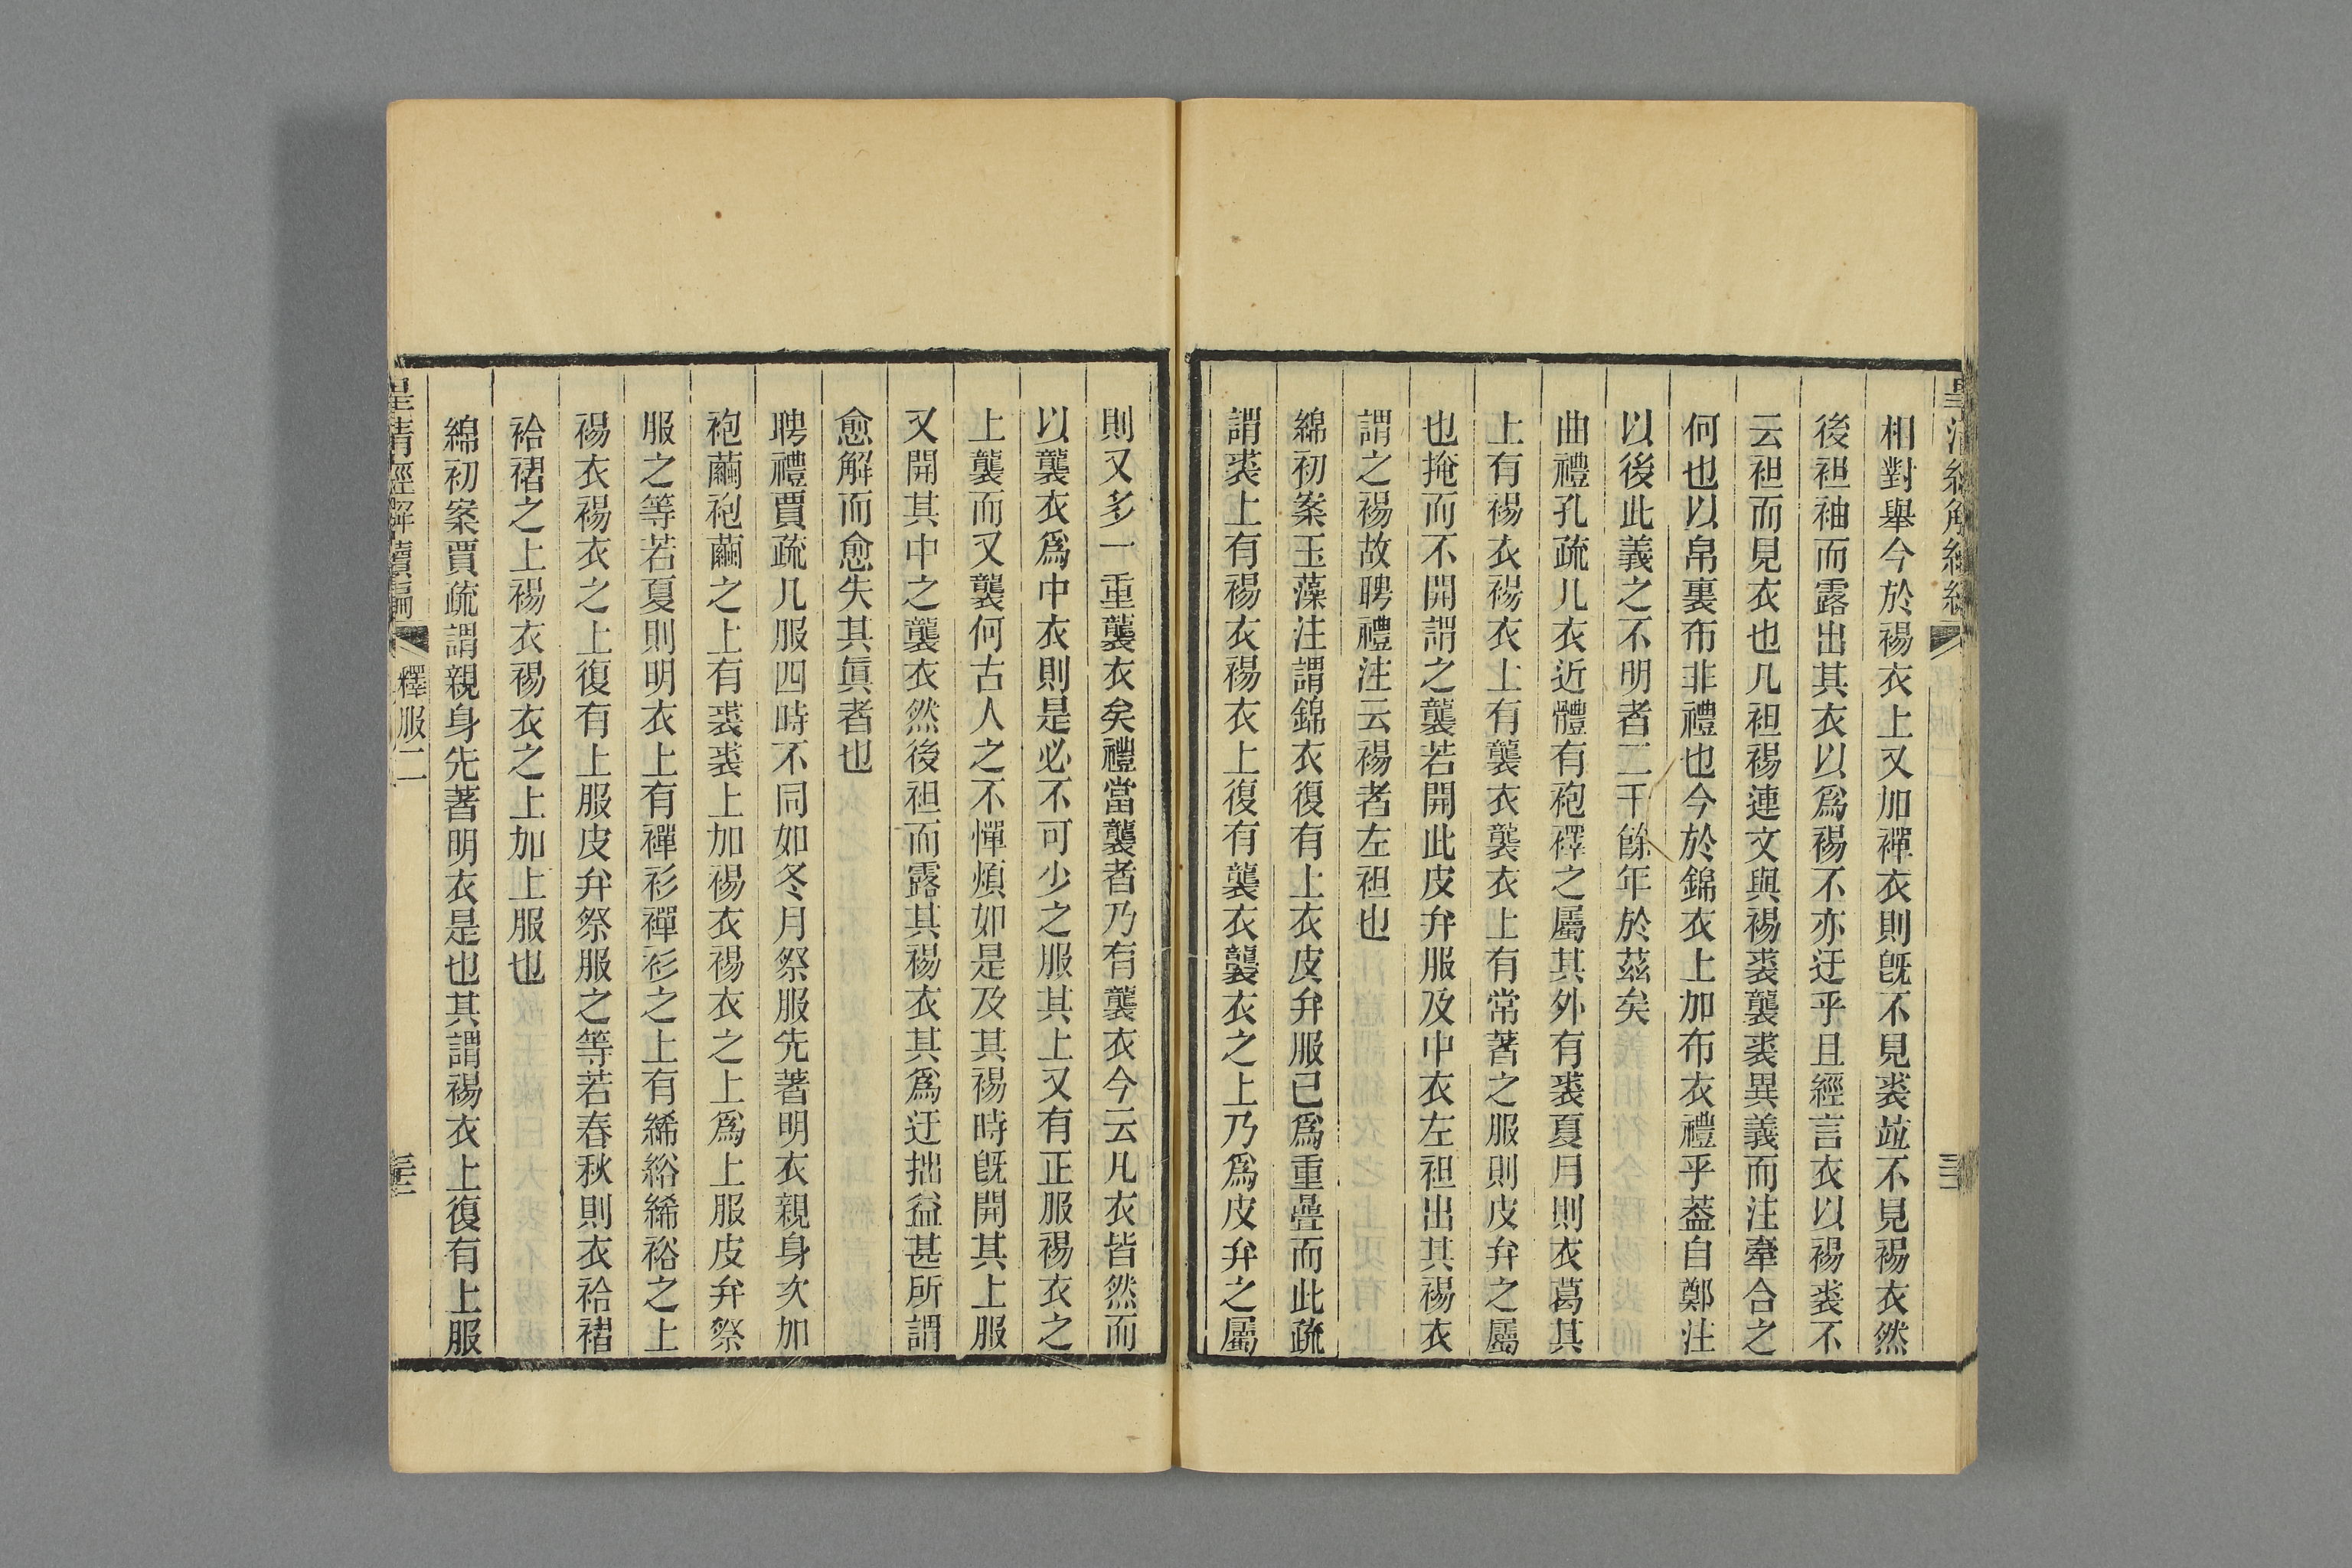 相對舉今於裼衣上又加襌衣則旣不見裘竝不見裼衣然
後袒袖而露出其衣以爲裼不亦迂乎且經言衣以裼裘不
云袒而見衣也凡袒裼連文與裼裘襲裘異義而注牽合之
何也以帛裏布非禮也今於錦衣上加布衣禮乎葢自鄭注
以後此義之不明者二千餘年於茲矣
曲禮孔疏凡衣近體有袍襗之屬其外有裘夏月則衣葛其
上有裼衣裼衣上有襲衣襲衣上有常著之服則皮弁之屬
也掩而不開謂之襲若開此皮弁服及中衣左袒出其裼衣
謂之裼故聘禮注云裼者左袒也
綿初案玉藻注謂錦衣復有上衣皮弁服已爲重疊而此疏
謂裘上有裼衣裼衣上復有襲衣襲衣之上乃爲皮弁之屬
則又多一重襲衣矣禮當襲者乃有襲衣今云凡衣皆然而
以襲衣爲中衣則是必不可少之服其上又有正服裼衣之
上襲而又襲何古人之不憚煩如是及其裼時旣開其上服
又開其中之襲衣然後袒而露其裼衣其爲迂拙益甚所謂
愈解而愈失其眞者也
聘禮賈疏凡服四時不同如冬月祭服先著明衣親身次加
袍繭袍繭之上有裘裘上加裼衣裼衣之上爲上服皮弁祭
服之等若夏則明衣上有襌衫襌衫之上有絺綌絺綌之上
裼衣裼衣之上復有上服皮弁祭服之等若春秋則衣袷褶
袷褶之上裼衣裼衣之上加上服也
綿初案賈疏謂親身先著明衣是也其謂裼衣上復有上服
皇清經解續編
釋服二